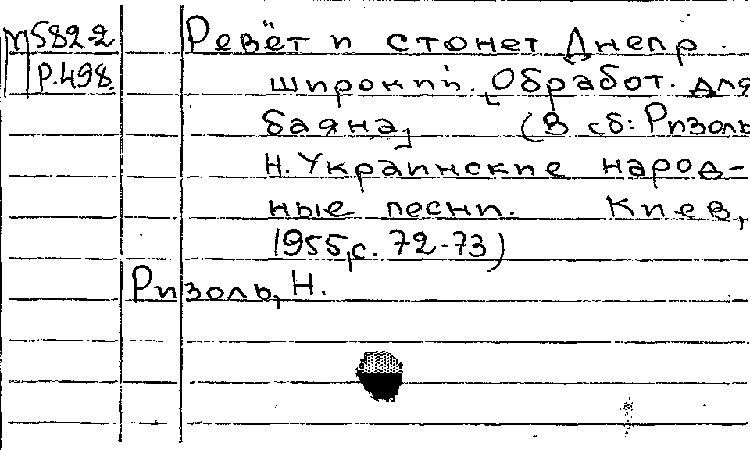 М582-2 Ревёт и стонет Днепр
Р.498 широкий. [Обработ. для
баяна] (В сб: Ризоль
Н. Украинские народ-
ные песни. Киев,
1955, с. 72-73)
Ризоль, Н.